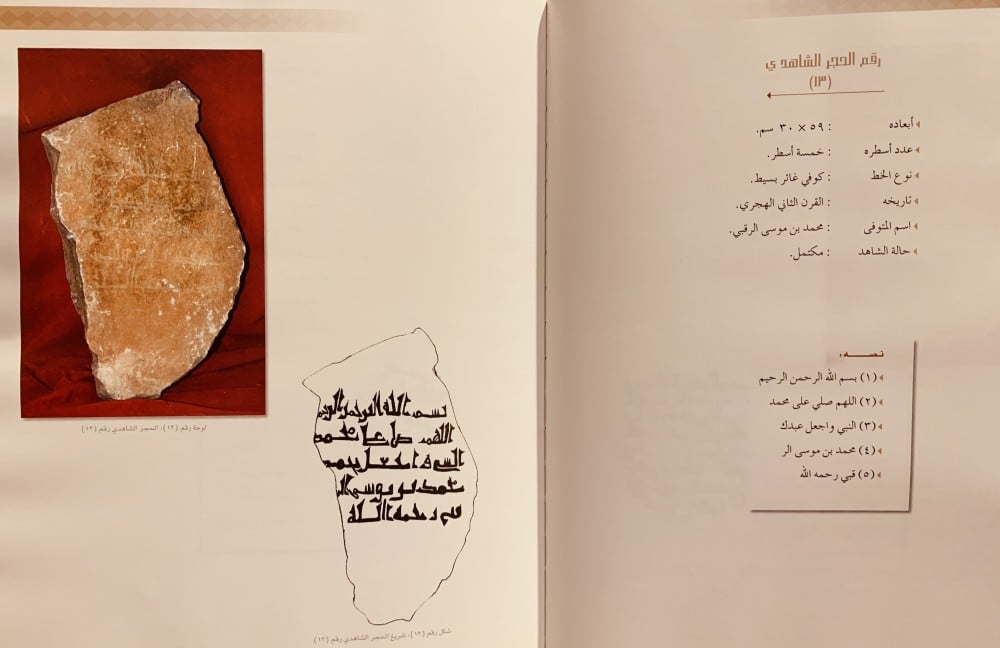 رقم الحجر الشاهدي
(١٣)
أبعاده : ٥٩ × ٣٠ سم.
عدد أسطره : خمسة أسطر.
نوع الخط : كوفي غائر بسيط.
تاريخه : القرن الثاني الهجري.
اسم المتوفى : محمد بن موسى الرقبي.
حالة الشاهد : مكتمل.
نصــــه:
(١) بسم الله الرحمن الرحيم
(٢) اللهم صلي على محمد
(٣) النبي واجعل عبدك
(٤) محمد بن موسى الر
(٥) قبي رحمه الله
لوحة رقم (١٣): الحجر الشاهدي رقم (١٣)
بسم الله الرحمن الرحيم
اللهم صلي على محمد
محمد بن موسى الر
قبي رحمه الله
شكل رقم (١٣): تفريغ الحجر الشاهدي رقم (١٣)